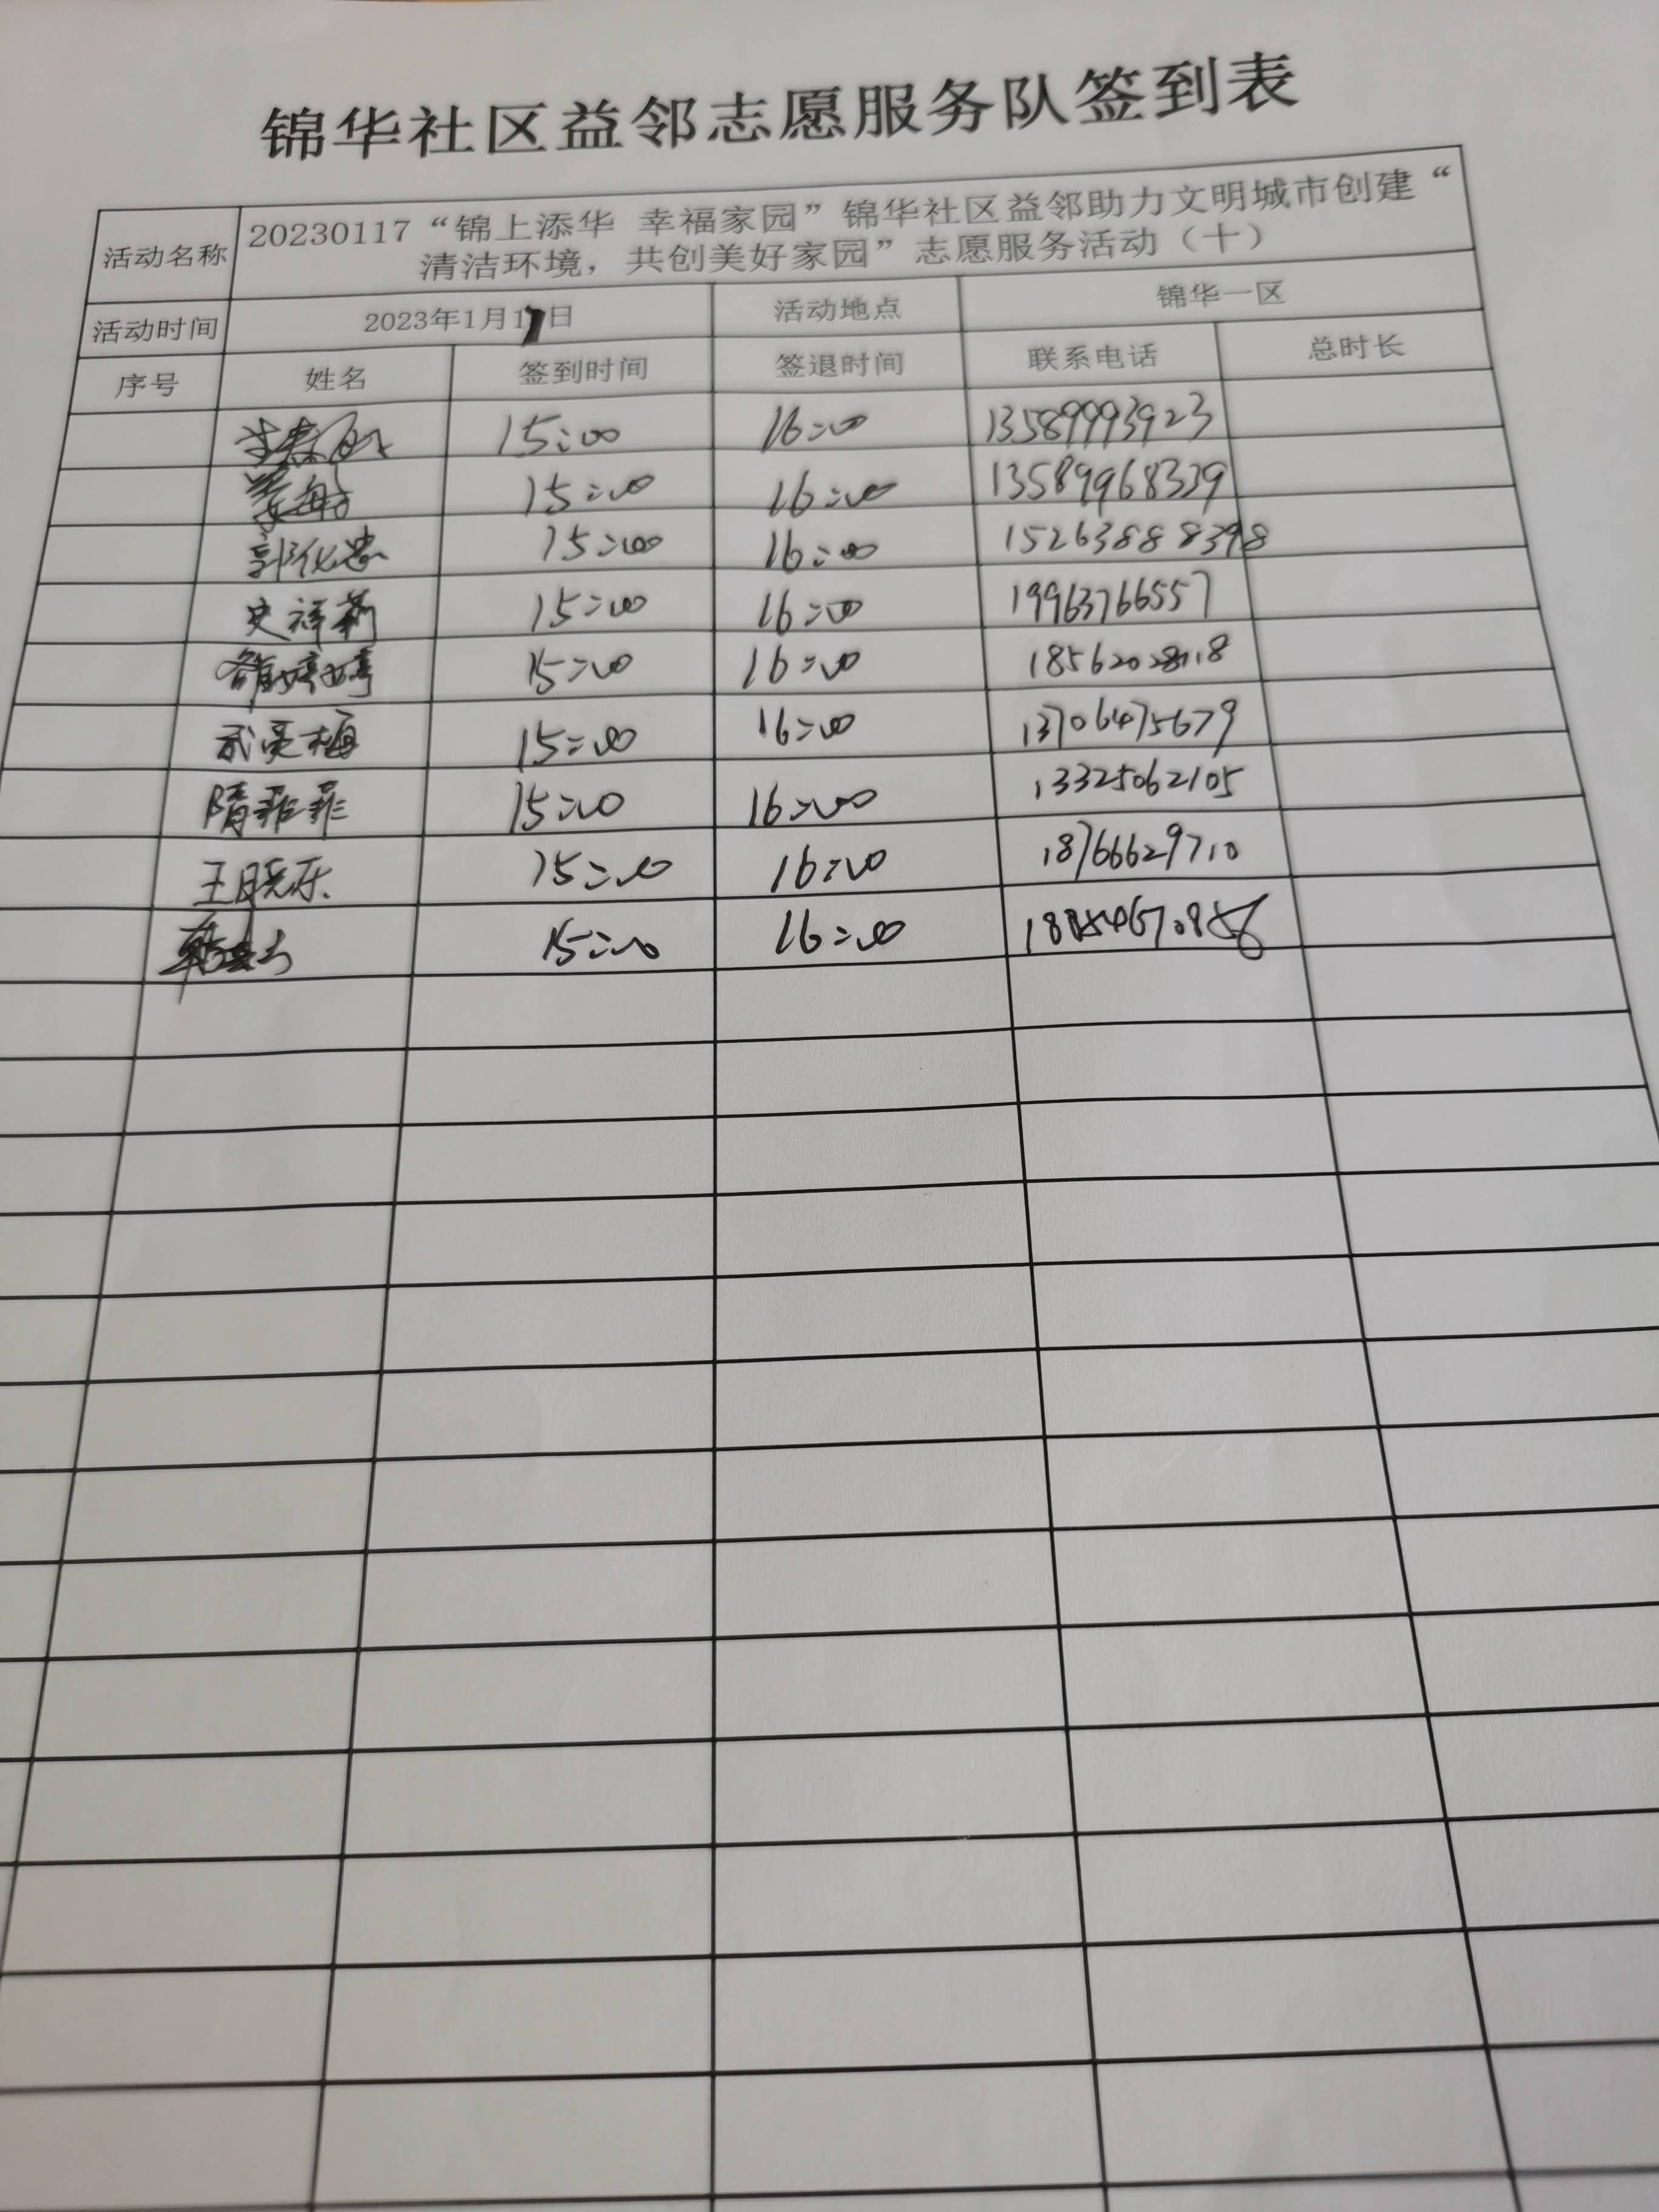 锦华社区益邻志愿服务队签到表
活动名称 20230117“锦上添华 幸福家园”锦华社区益邻助力文明城市创建“
清洁环境，共创美好家园”志愿服务活动（十）
活动时间 2023年1月17日 活动地点 锦华一区
序号 姓名 签到时间 签退时间 联系电话 总时长
15:00 16:00 13589993923
姜海 15:00 16:00 13589968339
郭化忠 15:00 16:00 15263888398
史祥莉 15:00 16:00 19963766557
婷婷 15:00 16:00
武英梅 15:00 16:00 13706475679
隋菲菲 15:00 16:00 13325062105
王晓乐 15:00 16:00 18766629710
韩 15:00 16:00